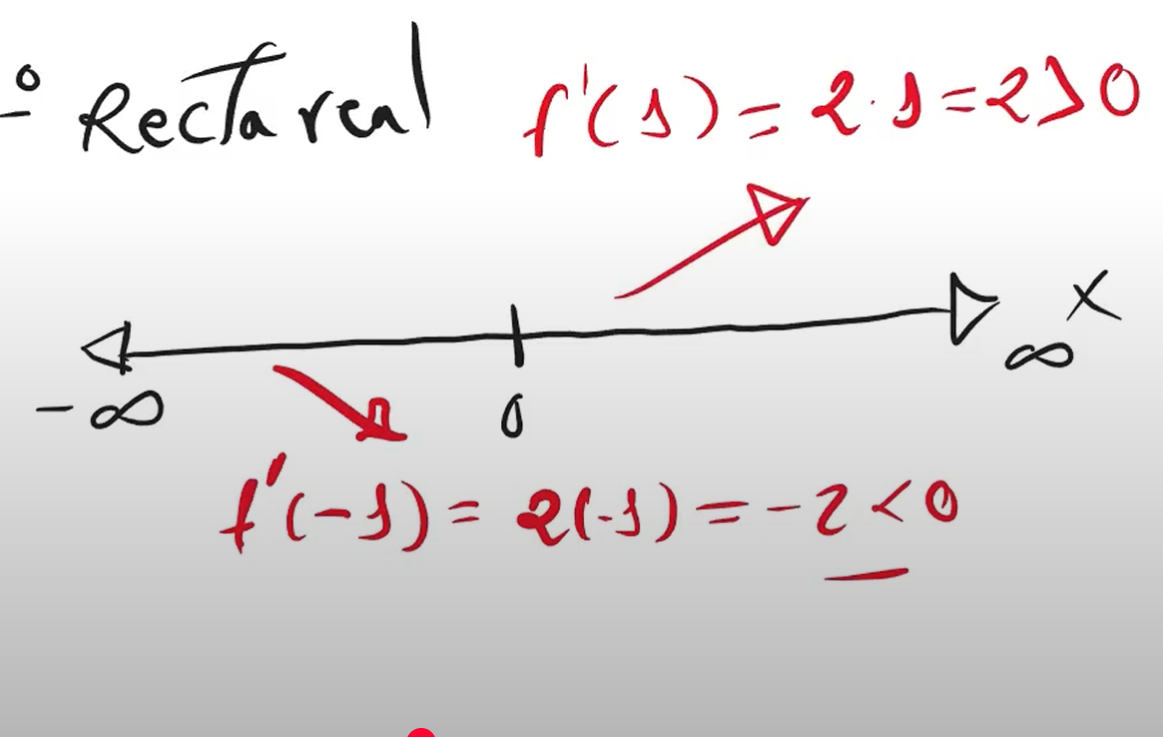 º Recta real
f'(1) = 2·1 = 2 > 0
x
-∞ 0 ∞
f'(-1) = 2(-1) = -2 < 0